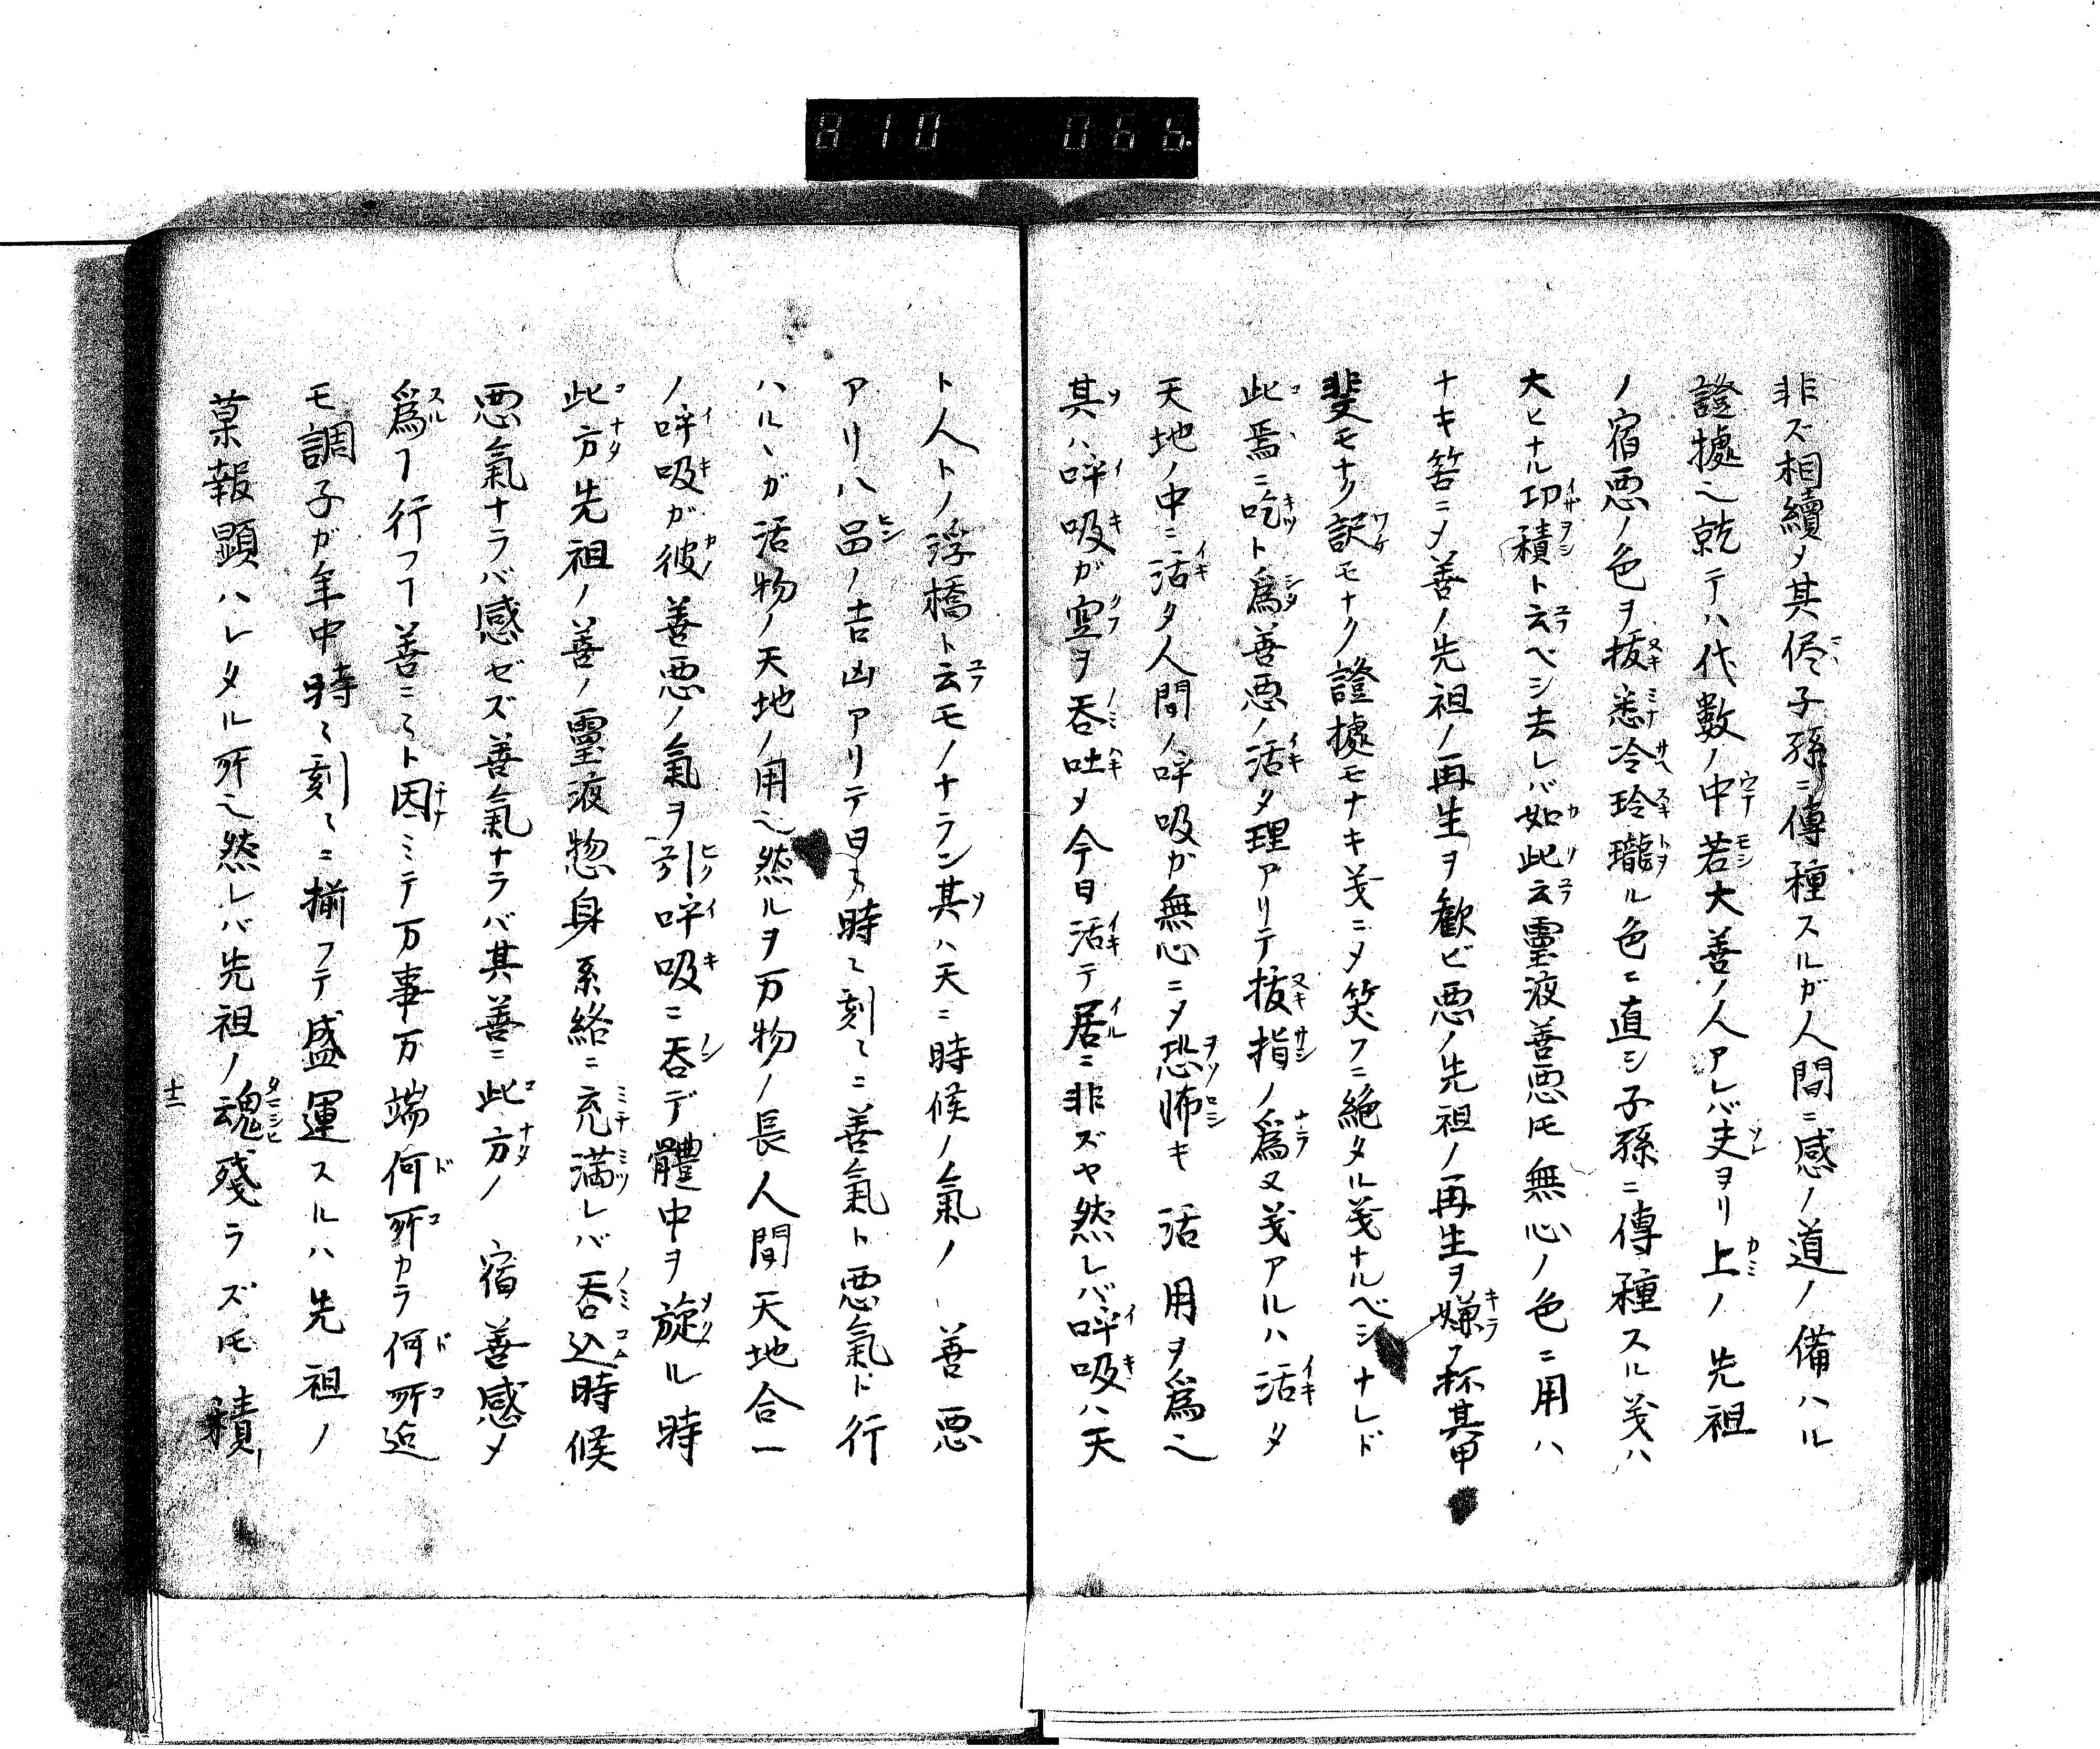 810 066.
非ズ相續〆其侭子孫ニ傳種スルガ人間ニ感ノ道ノ備ハル
證據〜乾テハ代數ノ中若大善ノ人アレバ夫ヨリ上ノ先祖
ノ宿悪ノ色ヲ抜悉冷玲瓏ル色ニ直シ子孫ニ傳種スル㐂ハ
大ヒナル功積ト云ベシ去レバ如此云靈液善悪ㇳモ無心ノ色ニ用ハ
ナキ筈ニ〆善ノ先祖ノ再生ヲ歓ビ悪ノ先祖ノ再生ヲ嫌フ抔其甲
斐モナク訳モナク證據モナキ㐂ニ〆笑フニ絶タル㐂ナルベシナレド
此焉ニ吃ト為善悪ノ活タ理アリテ抜指ノ為又㐂アルハ活タ
天地ノ中ニ活タ人間ノ呼吸ガ無心ニ〆恐怖キ活用ヲ為〜
其ハ呼吸ガ空ヲ呑吐〆今日活テ居ニ非ズヤ然レバ呼吸ハ天
ト人トノ浮橋ト云モノナラン其ハ天ニ時候ノ氣ノ善悪
アリハ㽞ノ吉凶アリテ日〻時〻刻〻ニ善氣ト悪氣ド行
ハルヽガ活物ノ天地ノ用〜然ルヲ万物ノ長人間天地合一
ノ呼吸ガ彼善悪ノ氣ヲ引呼吸ニ呑デ體中ヲ旋ル時
此方先祖ノ善ノ靈液惣身系絡ニ充満レバ呑込時候
悪氣ナラバ感ゼズ善氣ナラバ其善ニ此方ノ宿善感〆
為ヿ行フヿ善ニ〻ト因ミテ万事万端何所カラ何所迄
モ調子ガ年中時〻刻〻ニ揃フテ盛運スルハ先祖ノ
菓報顕ハレタル所〜然レバ先祖ノ魂殘ラズㇳモ積
十二